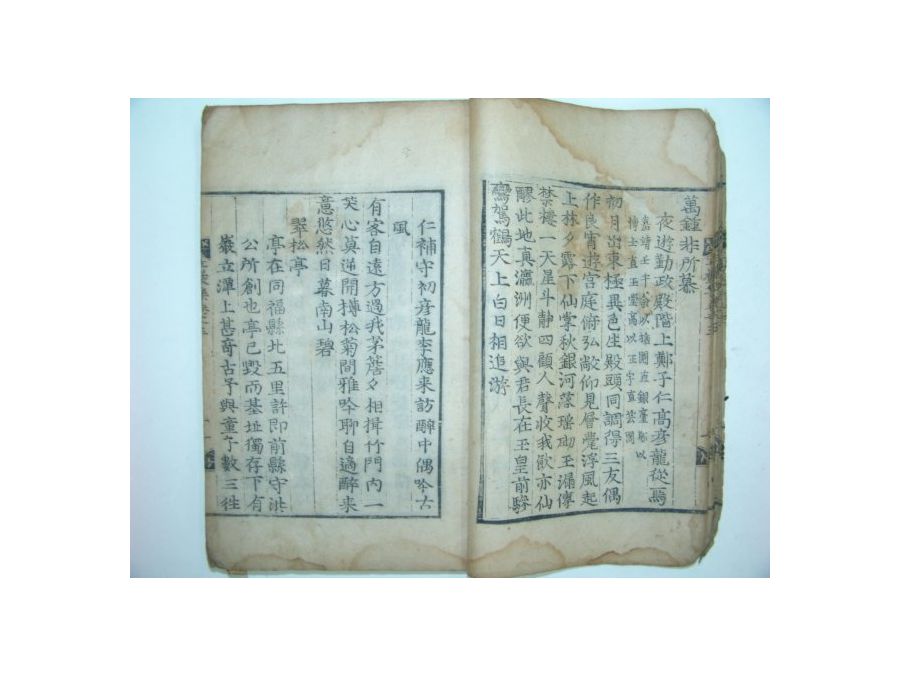 萬鍾非所慕
夜遊勤政殿階上鄭子仁高彥龍從焉
嘉靖壬子余以直銀臺鄭以
博士直玉堂高以正字直芸閣
初月出東極異色生殿頭同調得三友偶
作良宵遊宮庭俯弘敞仰見層甍浮風起
上林夕露下仙掌秋銀河落瑤砌玉漏傳
禁樓一天星斗靜四顧人聲收我飲亦仙
醪此地真瀛洲便欲與君長在玉皇前驂
鸞駕鶴天上白日相追游
仁補守初彥龍李應来訪醉中偶吟古
風
有客自遠方過我茅簷々相揖竹門內一
笑心莫逆開樽松菊間雅吟聊自適醉来
意悠然日暮南山碧
翠松亭
亭在同福縣北五里許即前縣守洪
公所創也亭已毀而基址獨存下有
巖立潭上甚奇古予與童子數三徃